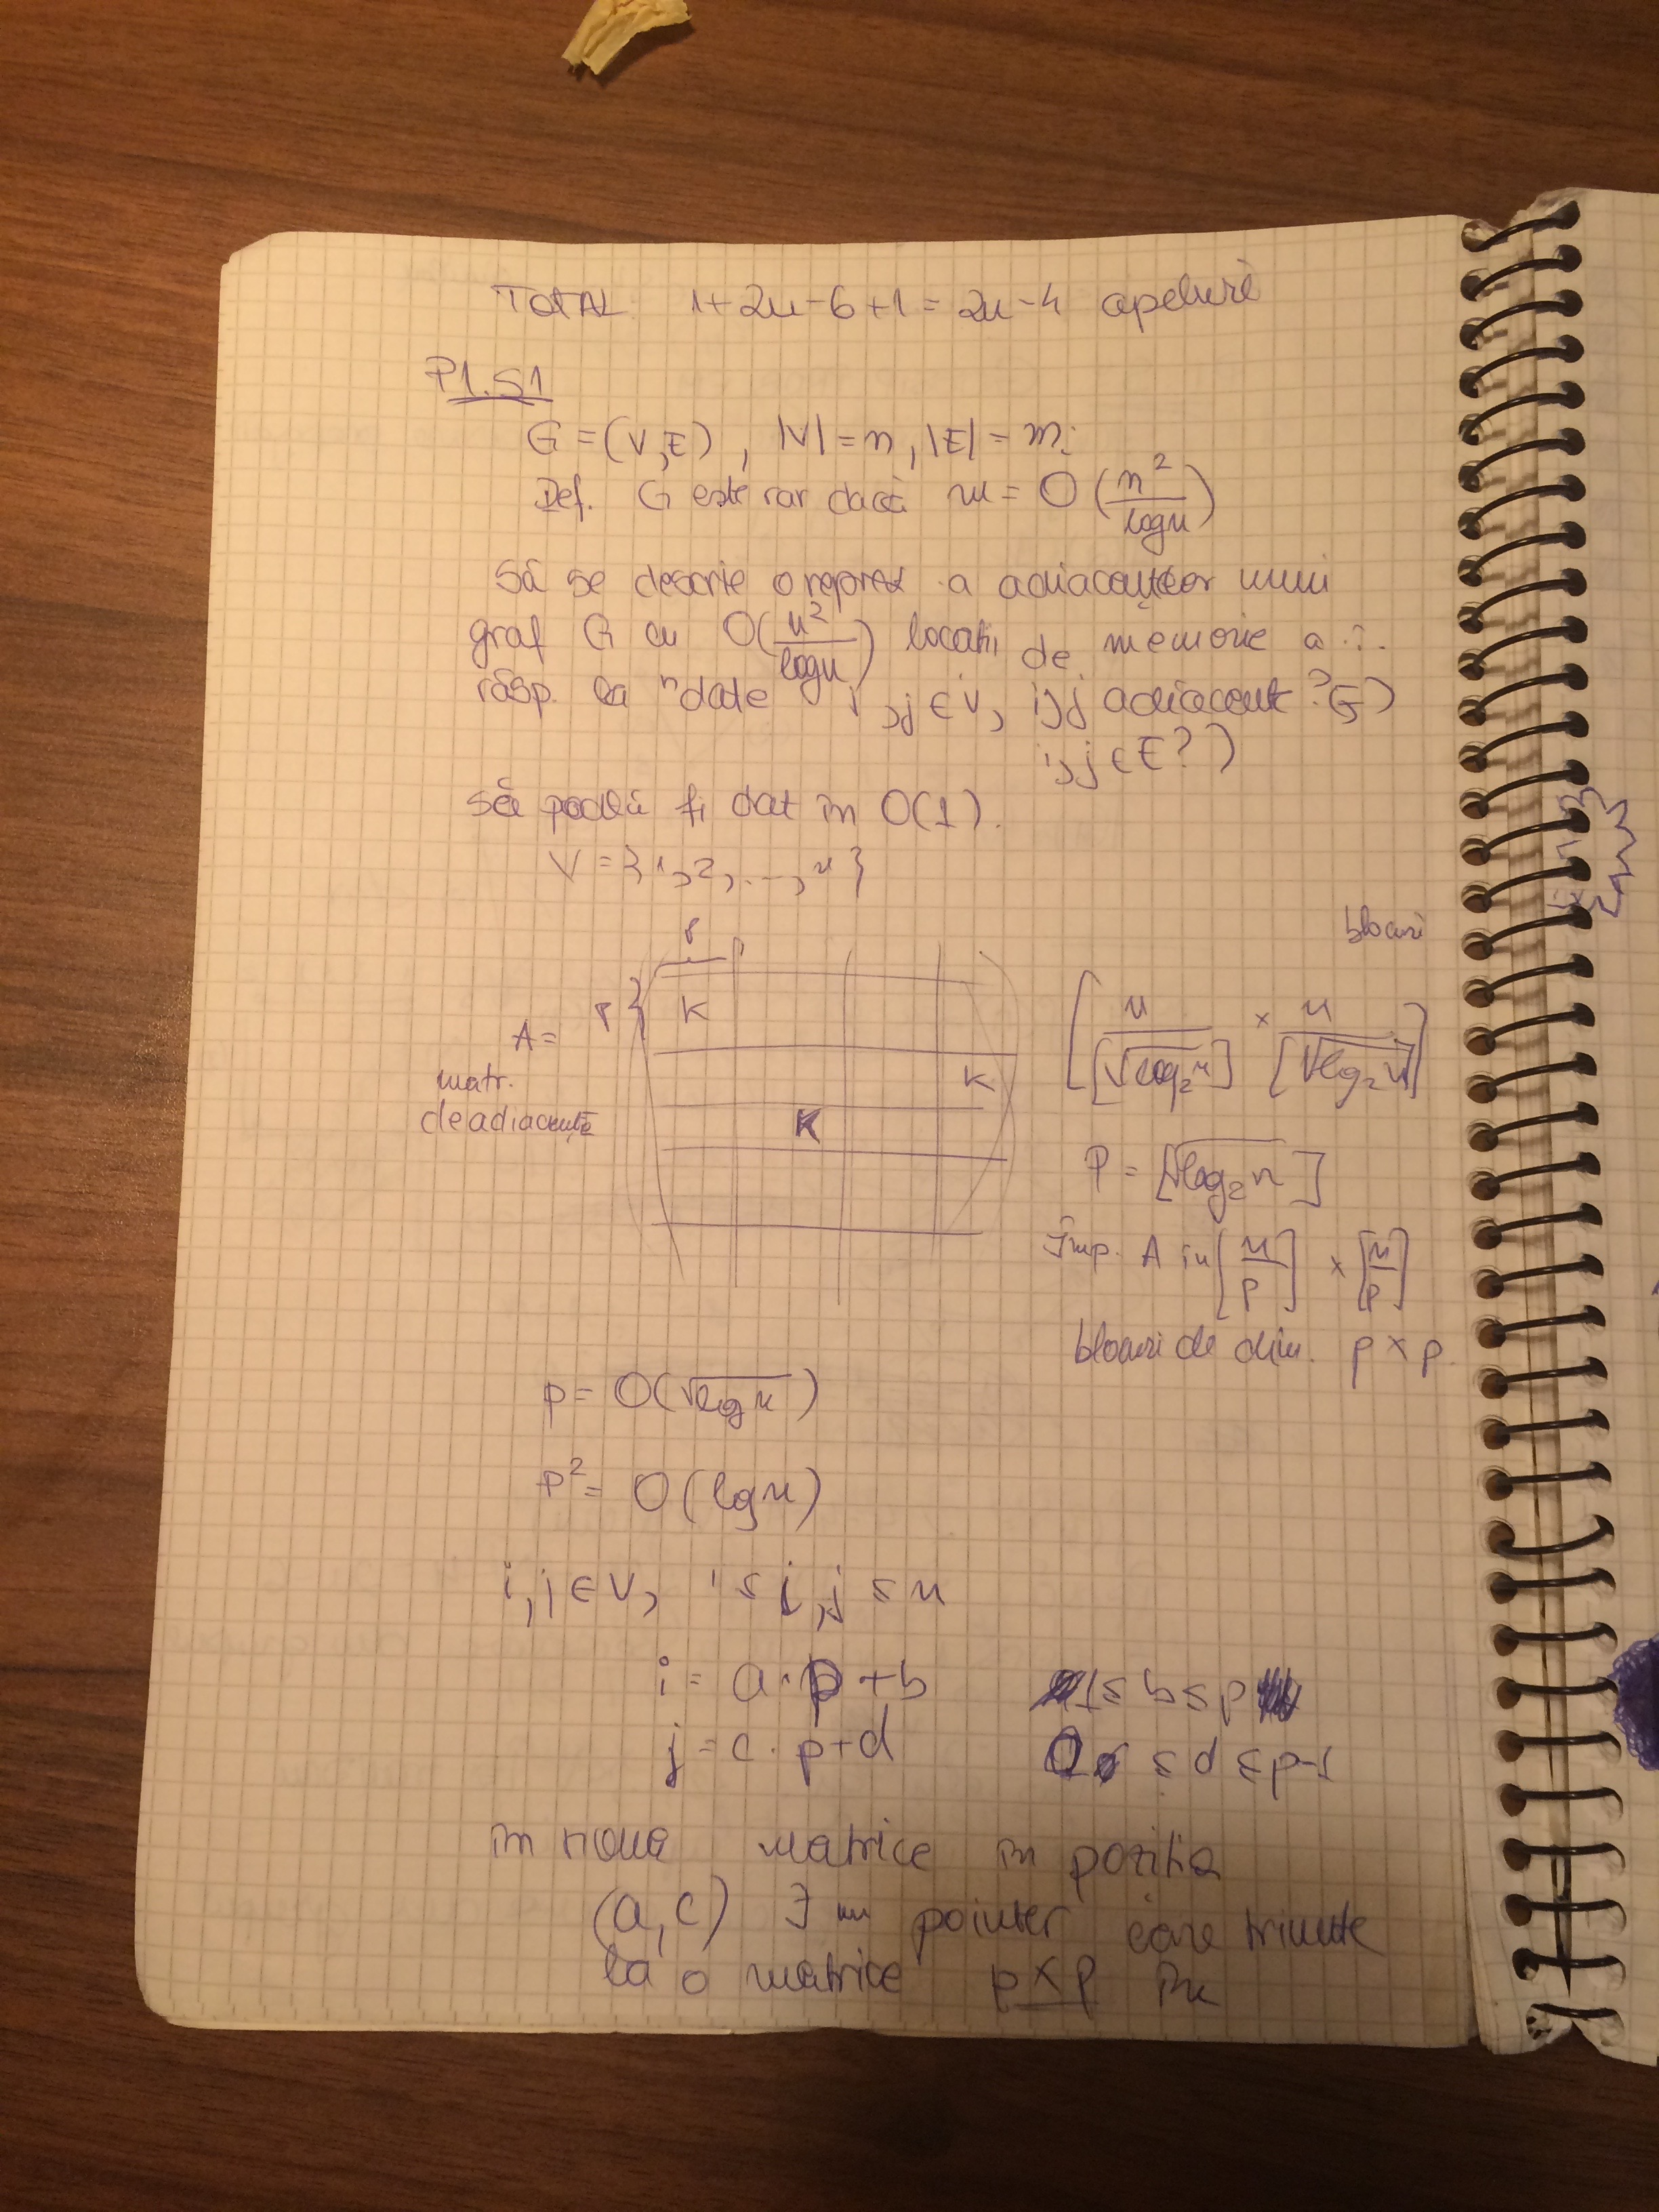 TOTAL 1+2n-6+1 = 2n-4 apeluri
P1.S1
G = (V,E), |V| = n, |E| = m.
Def. G este rar dacă m = O(n²/logn)
Să se descrie o reprez a adiacențelor unui
graf G cu O(n²/logn) locații de memorie a.î.
răsp. la "date i,j ∈ V, i,j adiacent? G)
i,j ∈ E?)
să poată fi dat în O(1).
V = {1,2,...,n}
blocuri
p
p } K
A =
matr.
de adiacență
K
K
[n/[√log₂n] × n/[√log₂n]]
P = [√log₂n]
Împ. A în [n/p] × [n/p]
blocuri de dim. p×p.
p = O(√logn)
p² = O(logn)
i,j ∈ V, 1 ≤ i,j ≤ n
i = a·p+b
j = c·p+d
în noua matrice în poziția
(a,c) ∃ un pointer care trimite
la o matrice p×p în